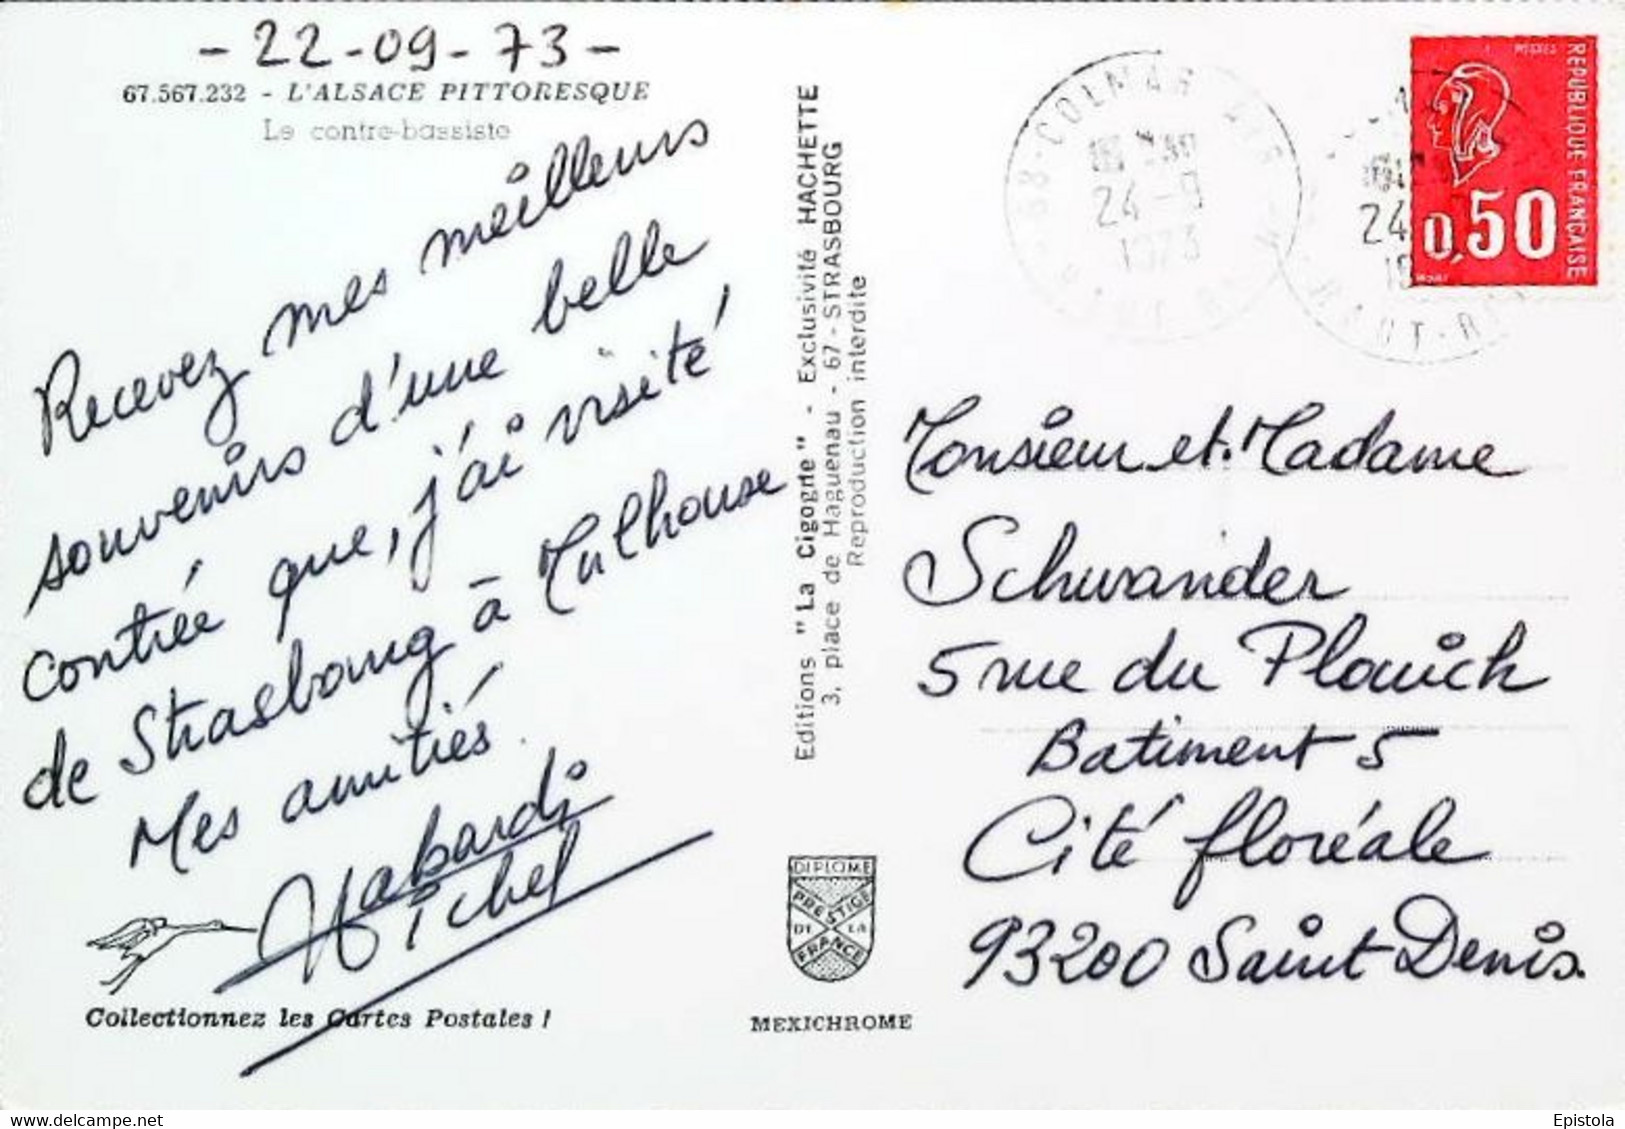 - 22 - 09 - 73 -
67.567.232 - L'ALSACE PITTORESQUE
Le contre-bassiste
Recevez mes meilleurs
souvenirs d'une belle
contrée que, j'ai visité
de Strasbourg à Mulhouse
Mes amitiés.
Habardi
Michel
Collectionnez les Cartes Postales !
Editions "La Cigogne" - Exclusivité HACHETTE
3, place de Haguenau - 67 - STRASBOURG
Reproduction interdite
DIPLOME
PRESTIGE
DE LA
FRANCE
MEXICHROME
68 - COLMAR
24 - 9
1973
HAUT-RHIN
24
HAUT-
POSTES
REPUBLIQUE FRANÇAISE
0,50
Monsieur et Madame
Schwander
5 rue du Plouich
Batiment 5
Cité floréale
93200 Saint Denis.
Epistola